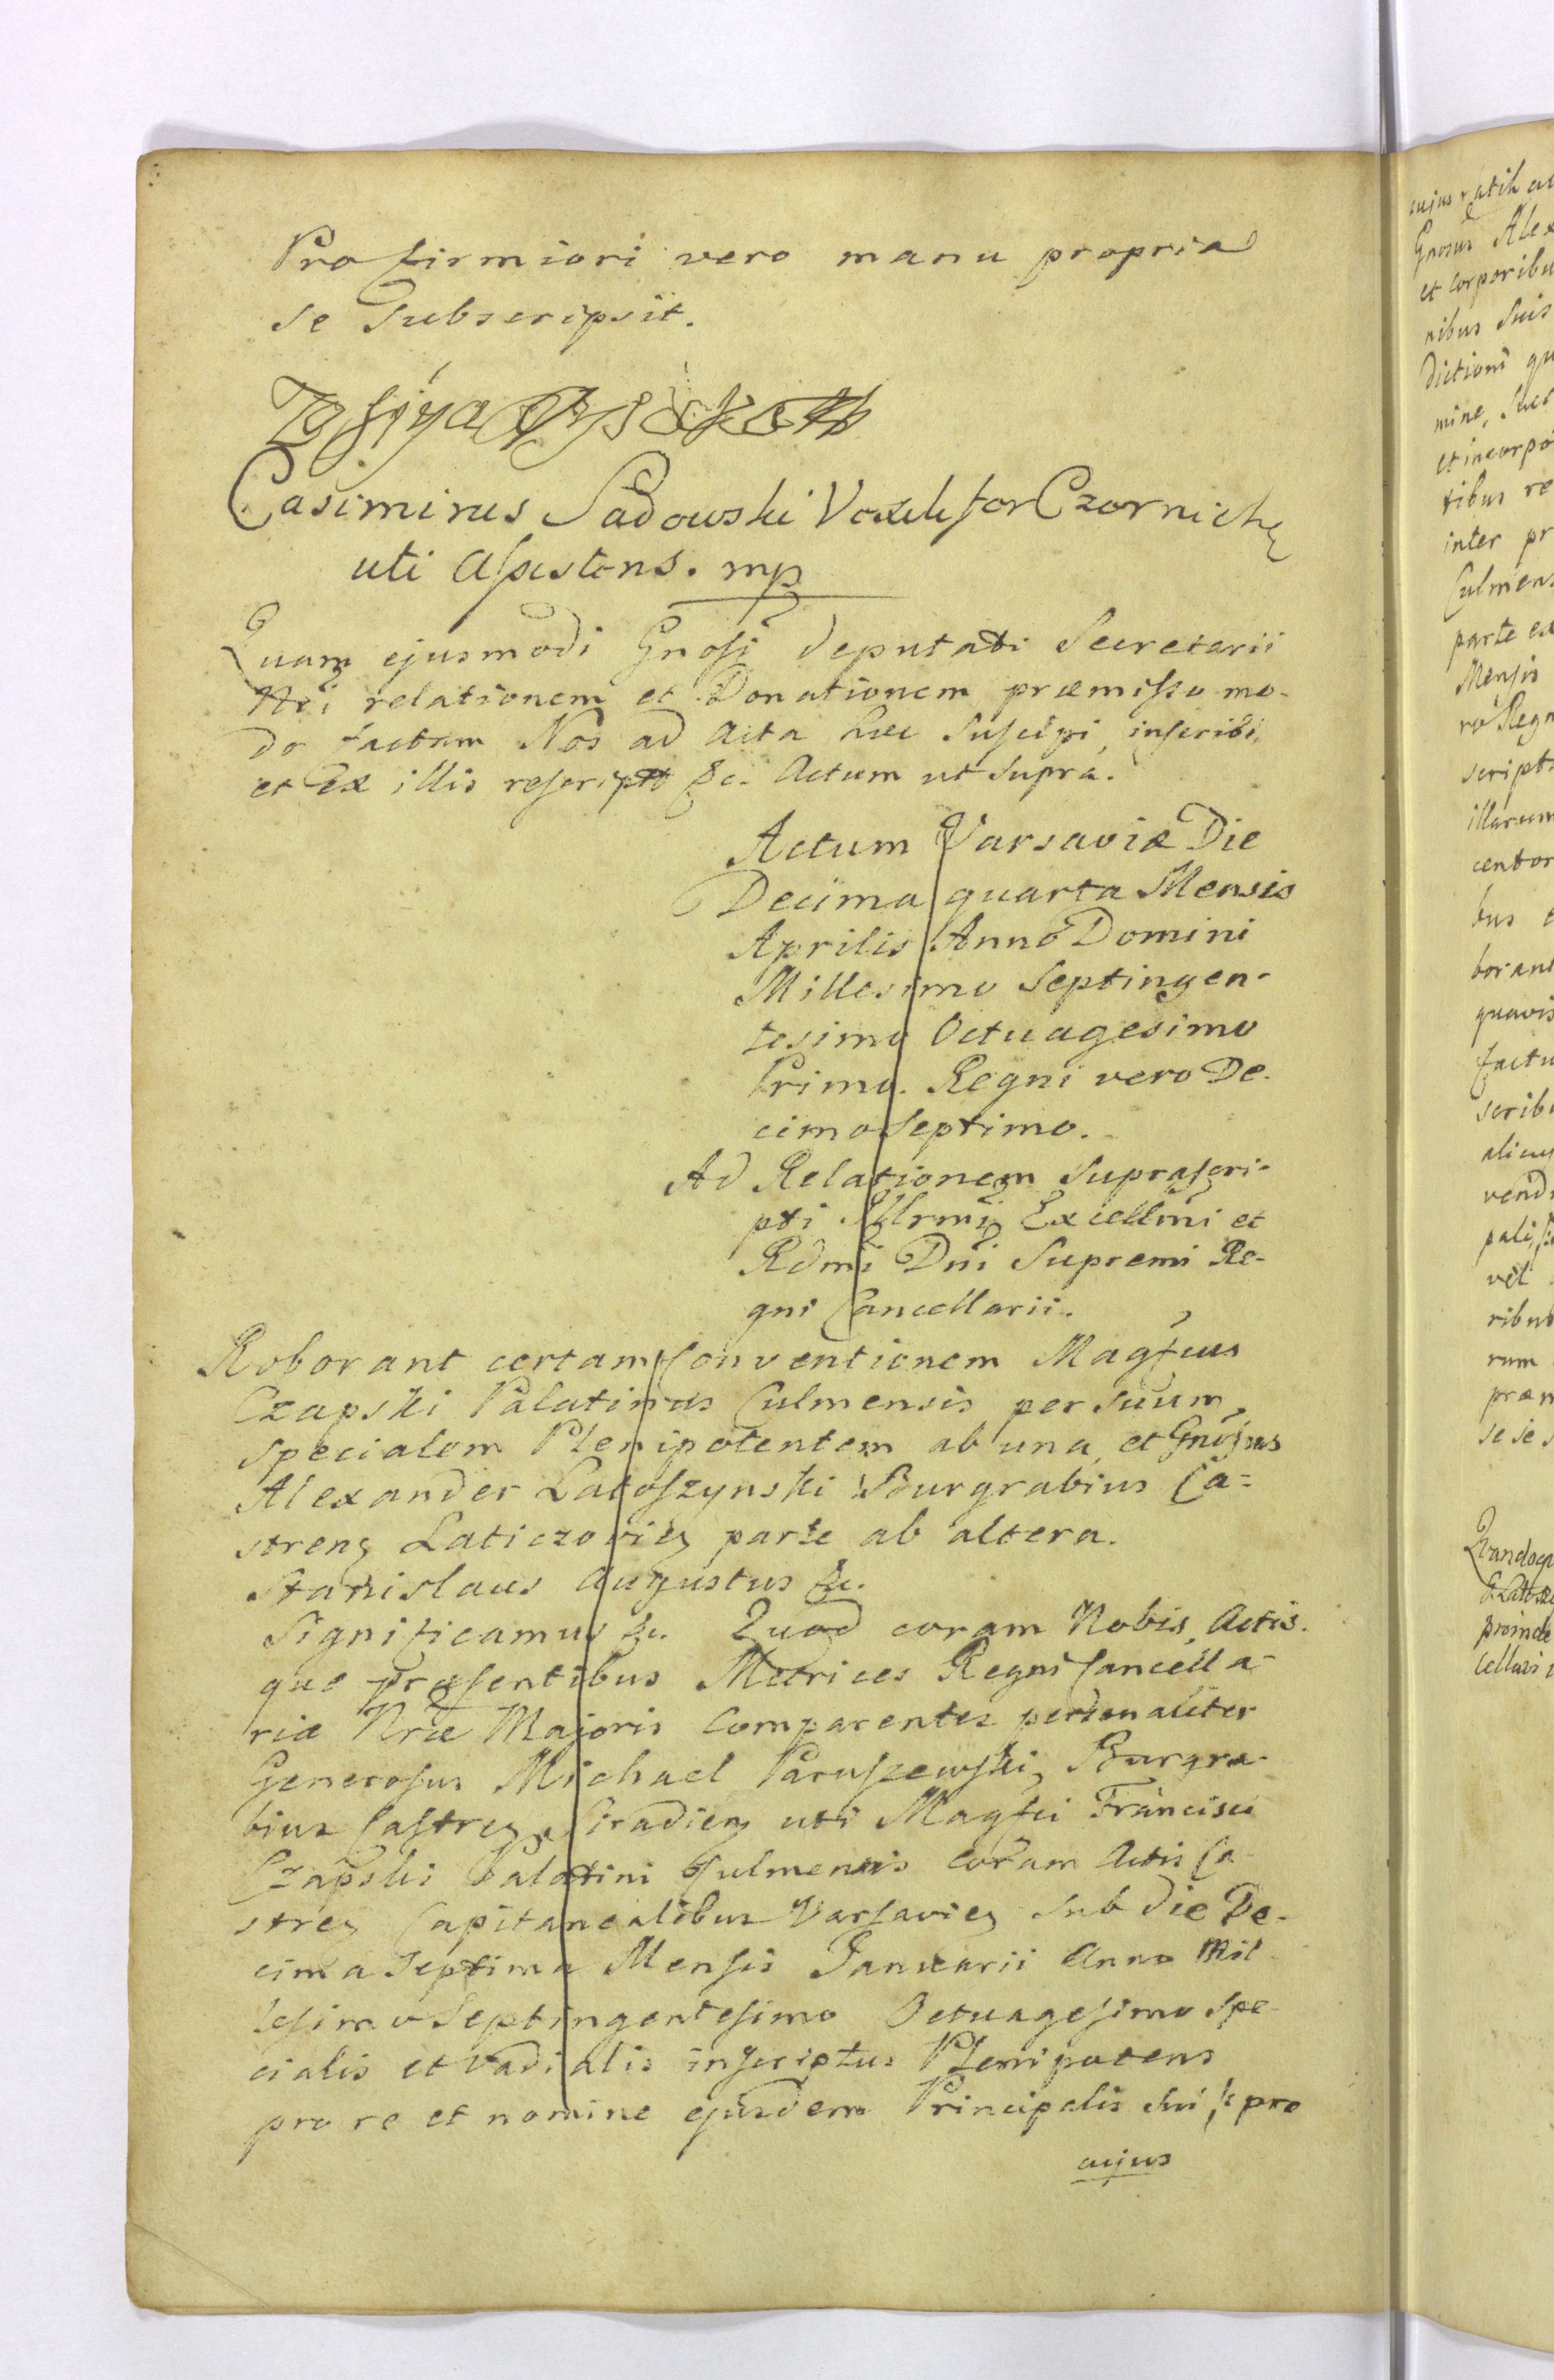 Pro firmiori vero manu propria
se Subscripsit.
Zofiya
Casimirus Sadowski Vexilifer Czerniche
uti Assistens. mp
Quam ejusmodi Gnosi deputati Secretarii
Nri relationem et Donationem præmisso mo-
do factam Nos ad Acta hæc Suscipi, inscribi,
et Ex illis rescripto &c. Actum ut Supra.
Actum Varsaviæ Die
Decima quarta Mensis
Aprilis Anno Domini
Millesimo Septingen-
tesimo Octuagesimo
Primo. Regni vero De-
cimo Septimo.
Ad Relationem Suprascri-
pti Illrmi Excellmi et
Rdmi Dni Supremi Re-
gni Cancellarii.
Roborant certam Conventionem Magfcus
Czapski Palatinus Culmensis per suum
specialem Plenipotentem ab una, et Gnosus
Alexander Latoszynski Burgrabius Ca=
strens Laticzovien parte ab altera.
Stanislaus Augustus &c.
Significamus &c. Quod coram Nobis, Actis-
que præsentibus Metrices Regni Cancella-
riæ Nræ Majoris Comparentes personaliter
Generosus Michael Paruszewski, Burgra-
bius Castren Siradien uti Magfci Francisci
Czapski Palatini Culmensis coram Actis Ca-
stren Capitanealibus Varsavien sub die De-
cima Septima Mensis Januarii Anno Mil
lesimo Septingentesimo Octuagesimo Spe-
cialis et vadialis inscriptus Plenipotens
pro re et nomine ejusdem Principalis sui /: pro
cujus
cujus ratih
Gnosus Alex
et corporibu
nibus suis
dictioni qu
mine, Suc
et incorpo
tibus re
inter pr
Culmens
parte ex
Mensis
Regn
script
illarum
centor
bus
borant
quavis
factu
scrib
alicuj
vend
pali,
vel
ribus
rum
præm
se se
proinde